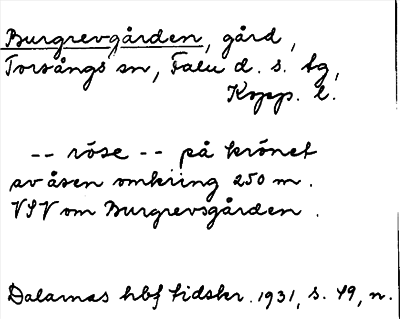 Burgrevgården, gård,
Torsångs sn, Falu d. s. tg,
Kopp. l.
-- röse -- på krönet
av åsen omkring 250 m.
VSV om Burgrevsgården.
Dalarnas hbf tidskr. 1931, s. 49, n.